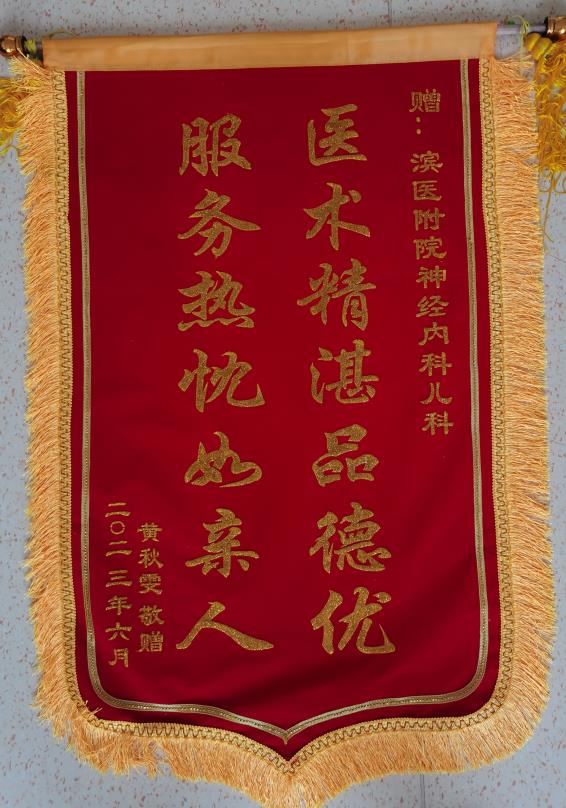 赠：滨医附院神经内科儿科
医术精湛品德优
服务热忱如亲人
黄秋雯敬赠
二〇二三年六月